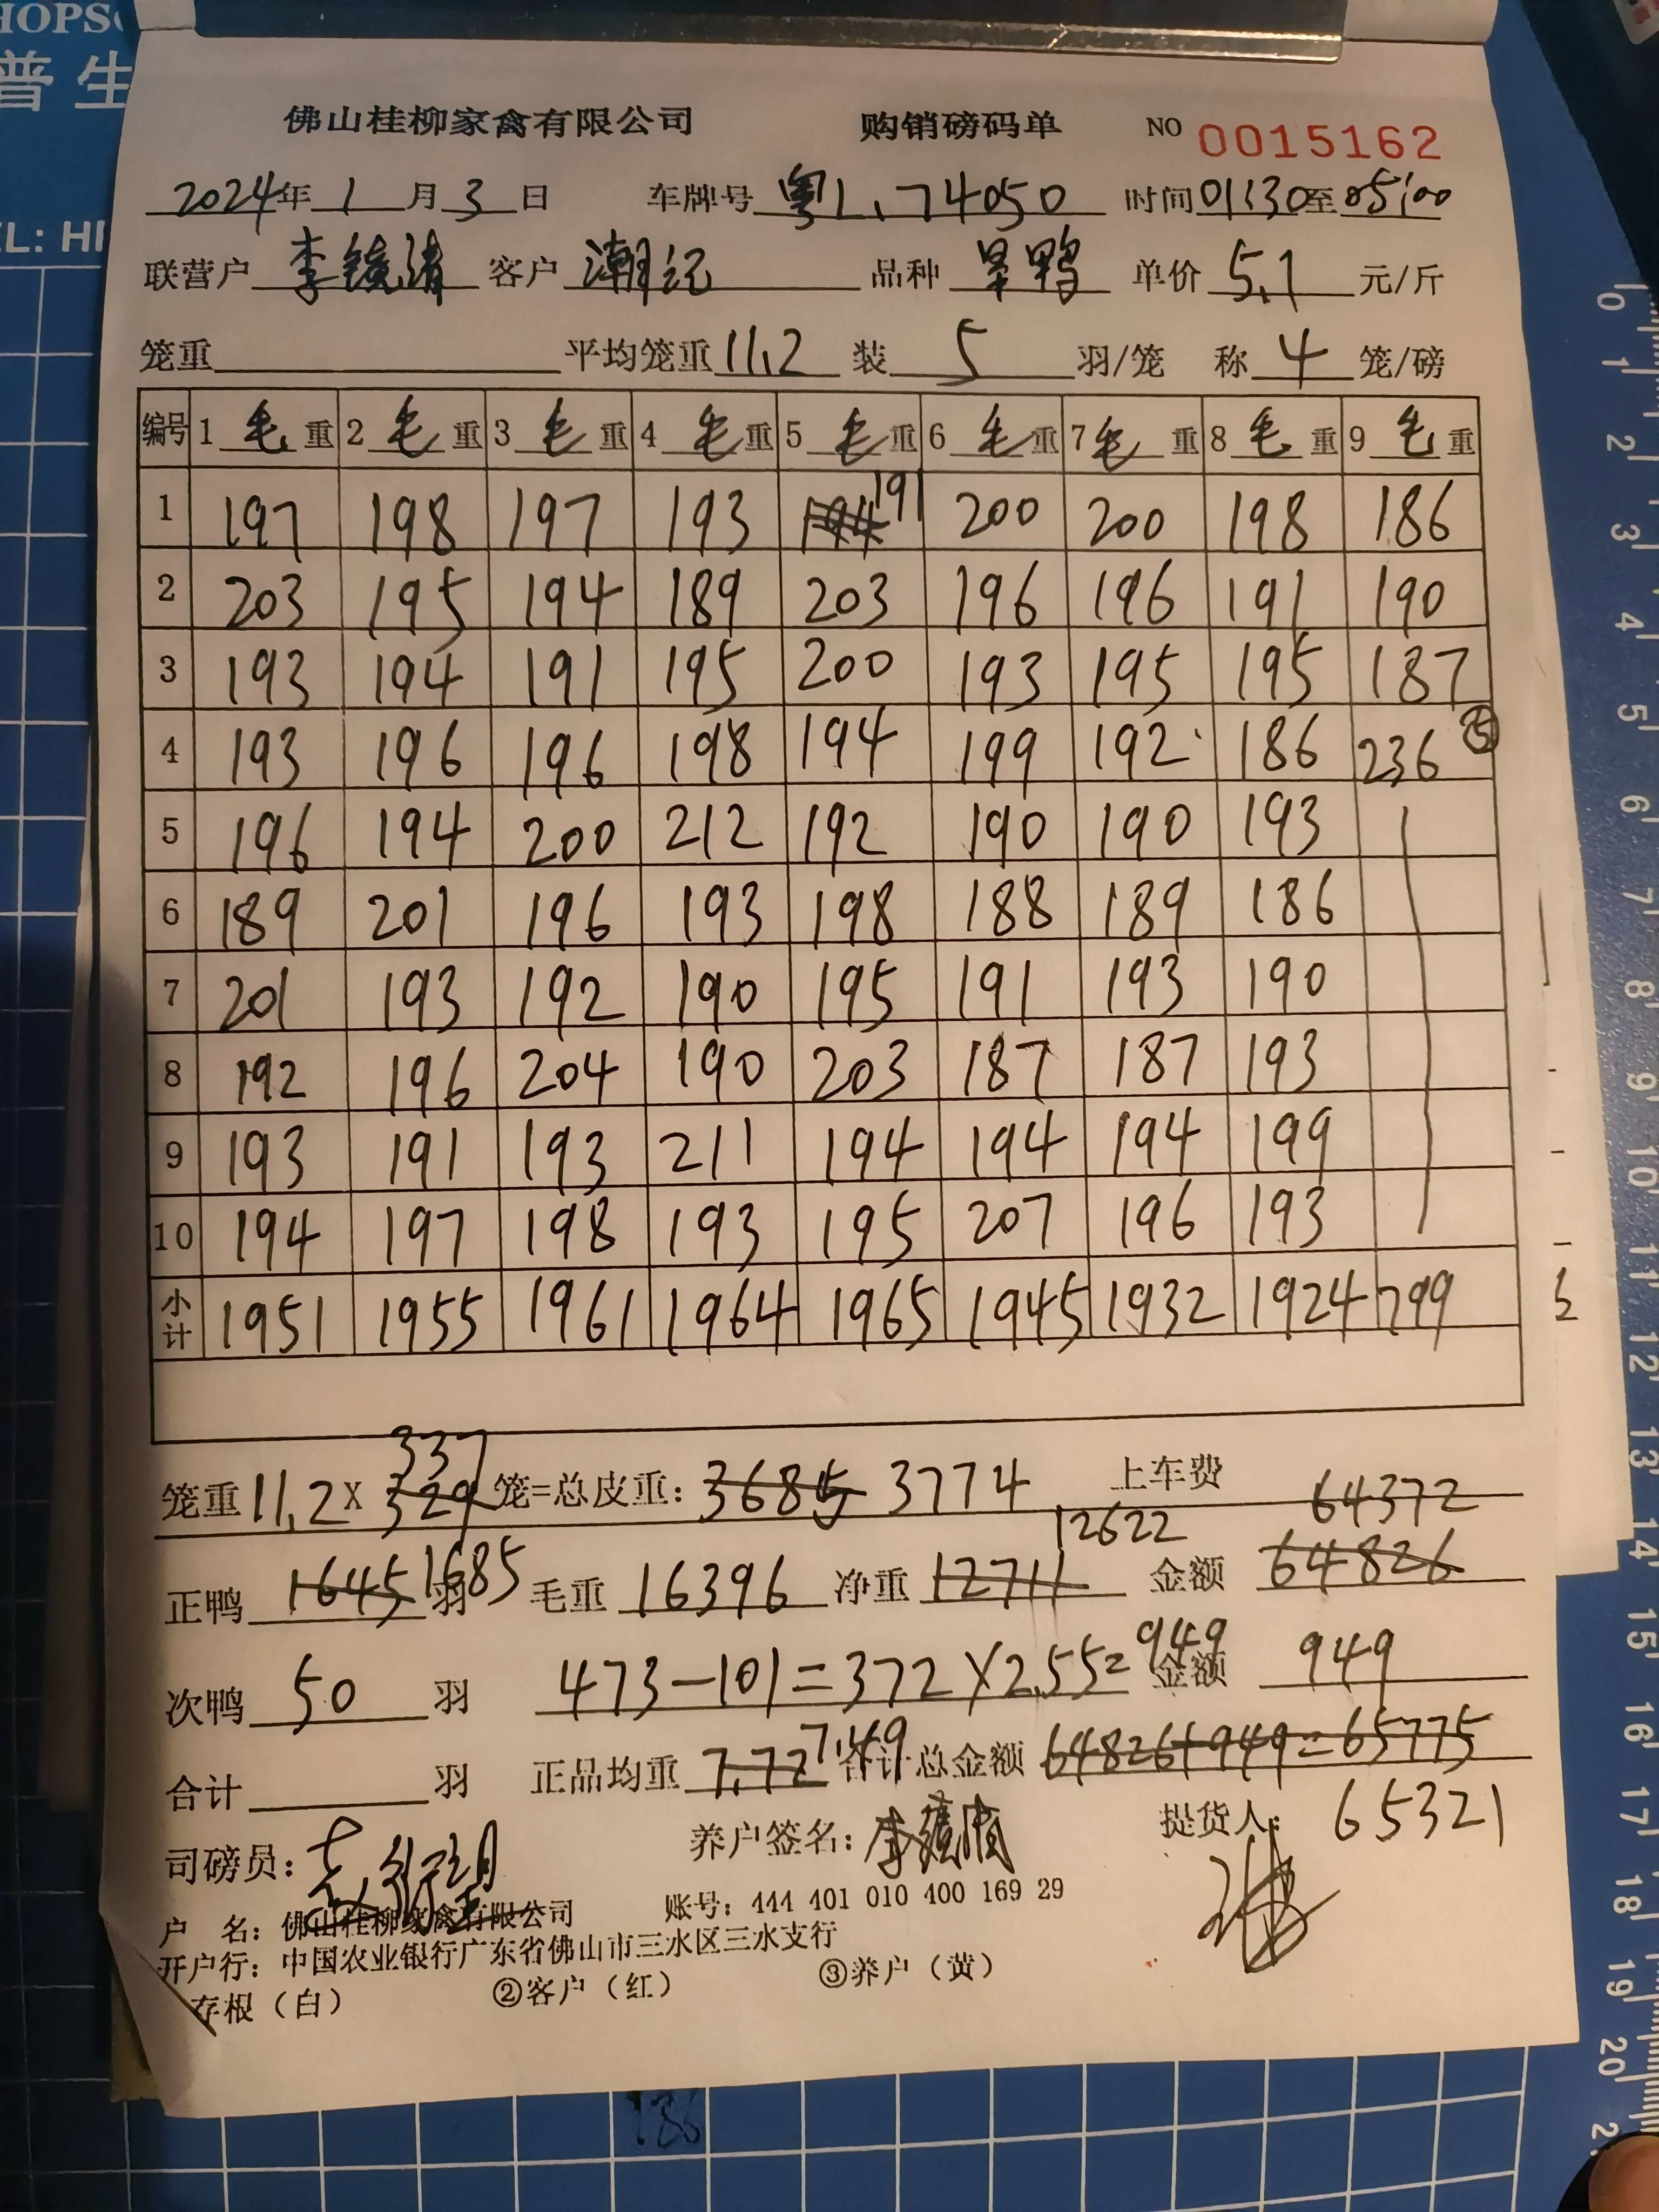 HOPS
普生
L: HI
佛山桂柳家禽有限公司 购销磅码单 NO 0015162
2024年1月3日 车牌号 粤L,74050 时间01:30至05:00
联营户 李镜清 客户 潮记 品种 旱鸭 单价 5.1 元/斤
笼重 平均笼重 11.2 装 5 羽/笼 称 4 笼/磅
编号 1 毛重 2 毛重 3 毛重 4 毛重 5 毛重 6 毛重 7 毛重 8 毛重 9 毛重
1 197 198 197 193 194 191 200 200 198 186
2 203 195 194 189 203 196 196 191 190
3 193 194 191 195 200 193 195 195 187
4 193 196 196 198 194 199 192 186 236 ⑤
5 196 194 200 212 192 190 190 193
6 189 201 196 193 198 188 189 186
7 201 193 192 190 195 191 193 190
8 192 196 204 190 203 187 187 193
9 193 191 193 211 194 194 194 199
10 194 197 198 193 195 207 196 193
小计 1951 1955 1961 1964 1965 1945 1932 1924 799
笼重 11.2 X 329 337 笼=总皮重: 3685 3774 上车费
正鸭 1645 1685 羽 毛重 16396 净重 12711 12622 金额 64826 64372
次鸭 50 羽 473-101=372X2.55=949 金额 949
合计 羽 正品均重 7.72 7.49 合计总金额 64826+949=65775
65321
司磅员: 养户签名: 李镜清 提货人:
户 名: 佛山桂柳家禽有限公司 账号: 444 401 010 400 169 29
开户行: 中国农业银行广东省佛山市三水区三水支行
存根（白） ②客户（红） ③养户（黄）
0 1 2 3 4 5 6 7 8 9 10 11 12 13 14 15 16 17 18 19 20